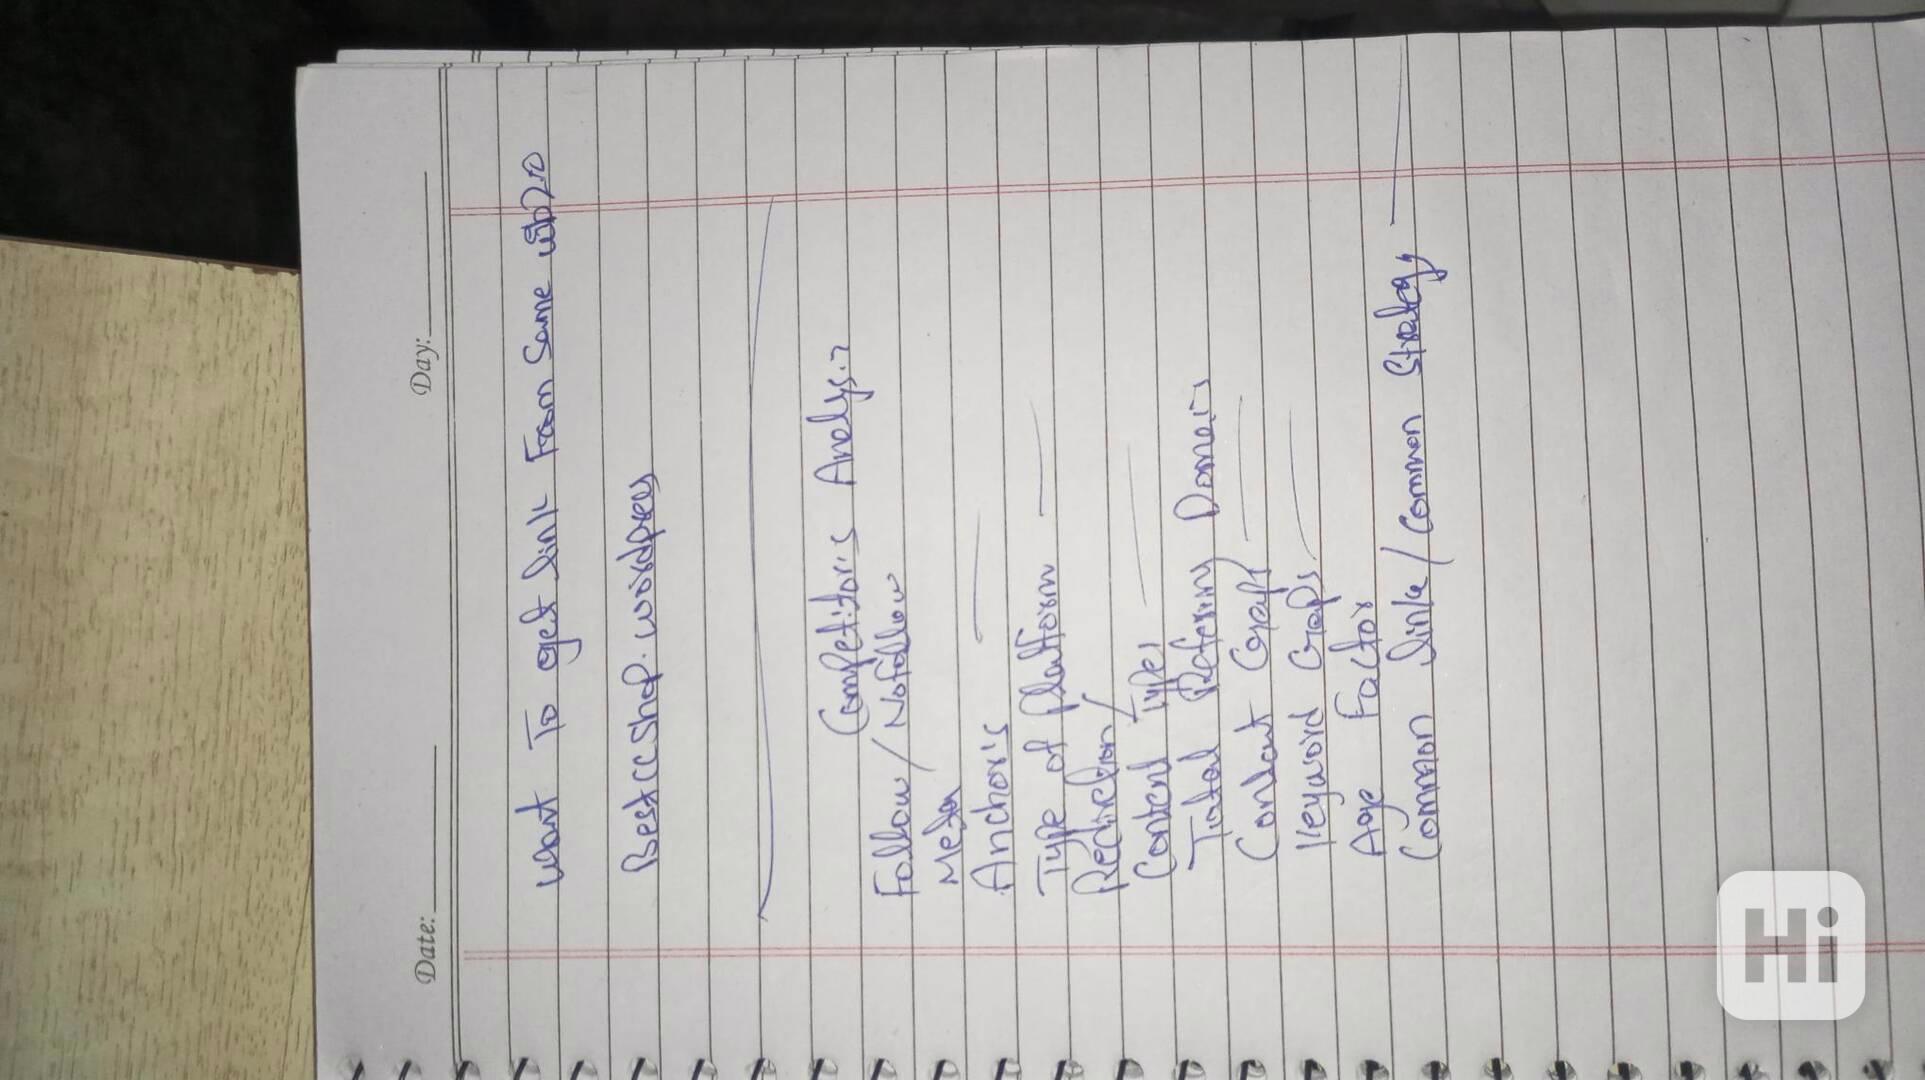 Date: Day:
want To get link From Same web 2.0
Bestccshop.wordpres
Competitor's Analys.
Follow / Nofollow
Anchor's
Type of Platform
Redirection/
Content Types
Total Refering Domains
Content Graph
Keyword Graps
Age Factor
Common link / Common Strategy
Hi